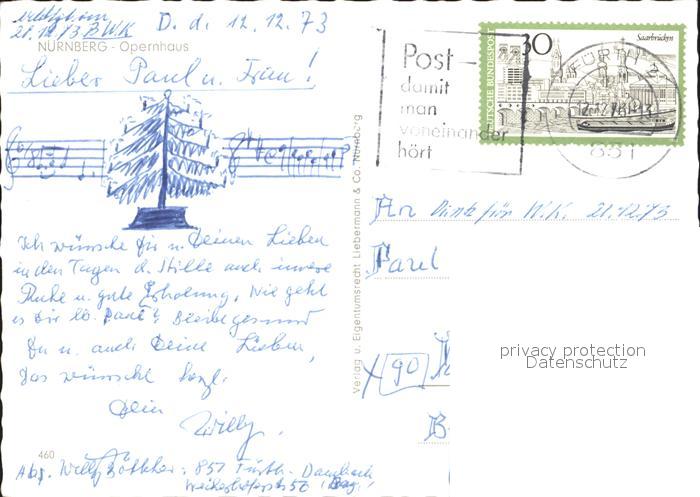 D. d. 12.12.73
21.12.73 B.W.K
NÜRNBERG - Opernhaus
Lieber Paul u. Frau!
Post-
damit
man
voneinander
hört
DEUTSCHE BUNDESPOST
30
Saarbrücken
FÜRTH 2
12.12.73
851
Verlag u. Eigentumsrecht Liebermann & Co. Nürnberg
An für W.K. 21.12.73
Paul
Ich wünsche dir u. Deinen Lieben
in den Tagen d. Stille auch innere
Ruhe u. gute Erholung, Wie geht
es Dir lb. Paul? Bleibe gesund
Du u. auch Deine Lieben,
das wünscht herzl.
Dein
Willy.
90
B
privacy protection
Datenschutz
460
Abs. Willy Böttcher: 851 Fürth - Dambach
56 (Bay.)